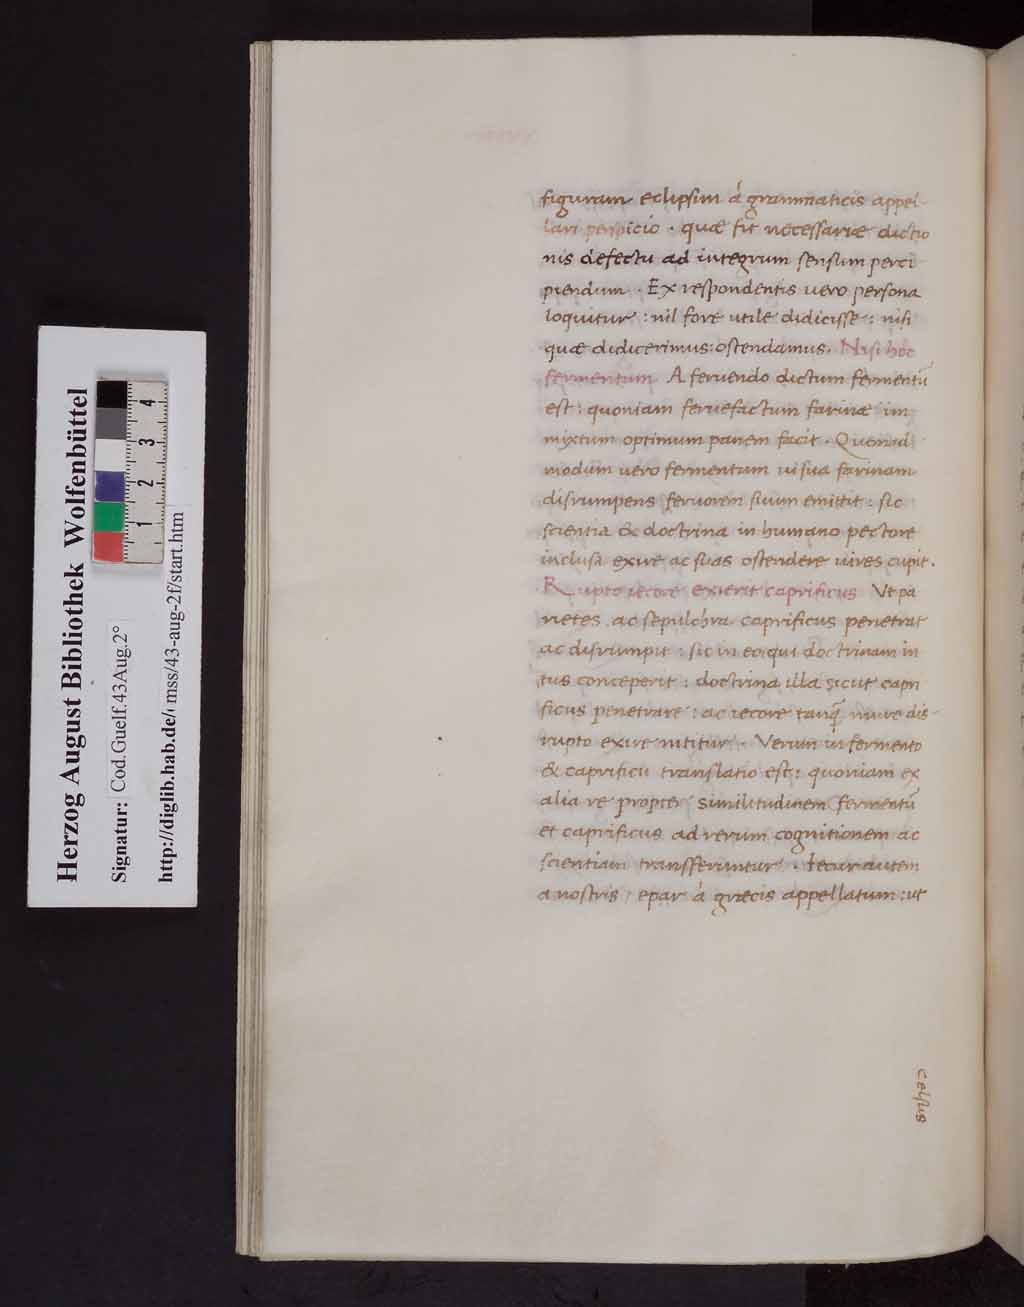 figuram eclipsim á grammaticis appel
lari perspicio . quæ fit necessariæ dictio
nis defectu ad integrum sensum perci
piendum . Ex respondentis uero persona
loquitur : nil fore utile didicisse : nisi
quæ didicerimus : ostendamus. Nisi hoc
fermentum A feruendo dictum fermentū
est : quoniam feruefactum farinæ im
mixtum optimum panem facit . Quemad
modum uero fermentum ui sua farinam
disrumpens feruorem suum emittit : sic
scientia & doctrina in humano pectore
inclusa exire ac suas ostendere uires cupit .
Rupto iecore exierit caprificus Vt pa
rietes ac sepulchra caprificus penetrat
ac disrumpit : sic in eo qui doctrinam in
tus conceperit : doctrina illa sicut capri
ficus penetrare : ac iecore tanq̄ muro dis-
rupto exire nititur . Verum in fermento
& caprifici translatio est : quoniam ex
alia re propter similitudinem fermentū
et caprificus ad rerum cognitionem ac
scientiam transferuntur . Iecur autem
a nostris / epar á græcis appellatum : ut
celsus
Herzog August Bibliothek Wolfenbüttel
Signatur: Cod.Guelf.43Aug.2°
http://diglib.hab.de/ mss/43-aug-2f/start.htm
1 2 3 4